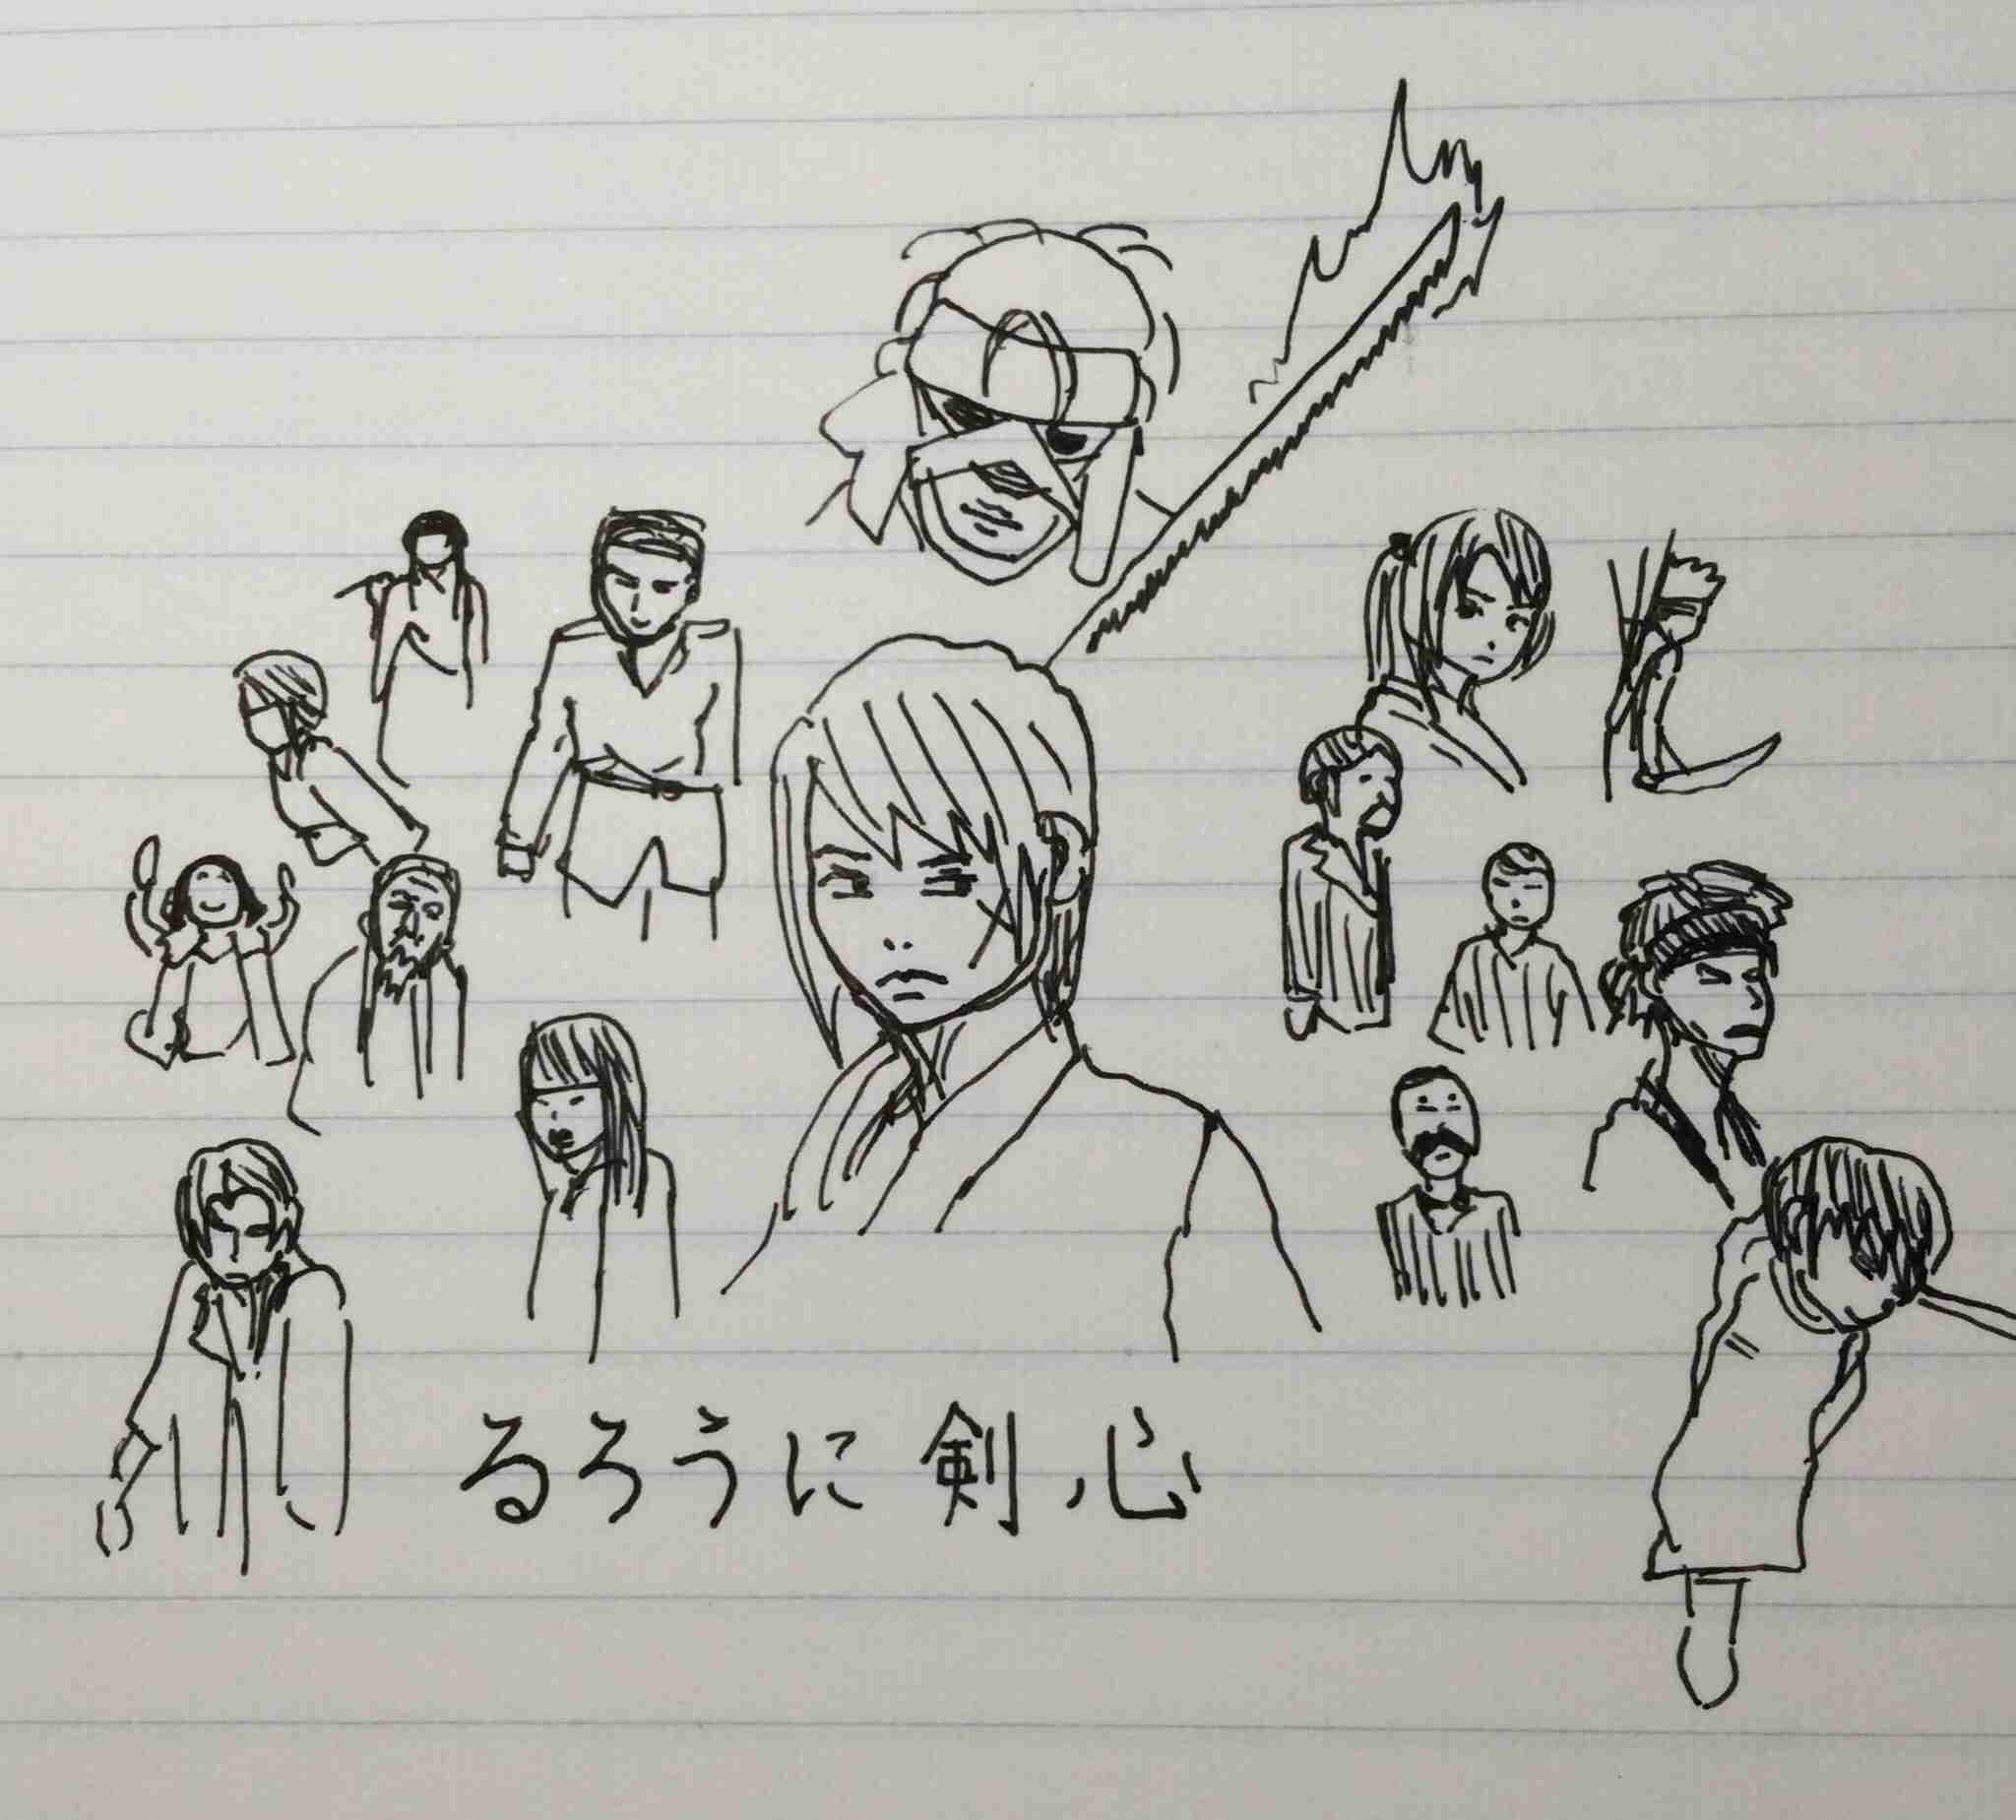 るろうに剣心